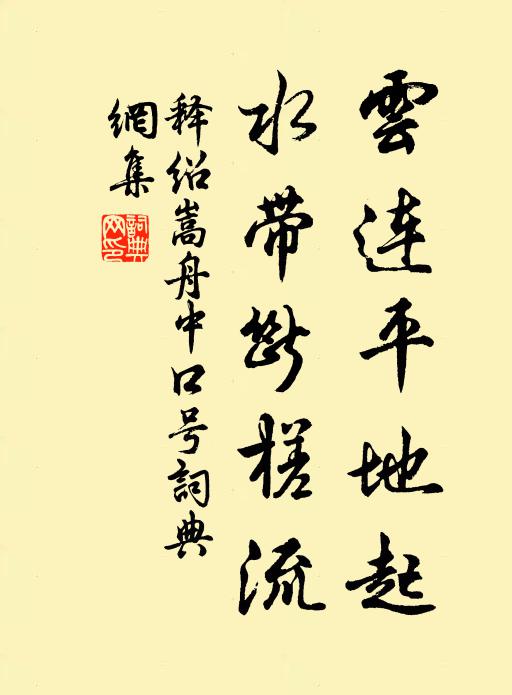 雲連平地起
水帶斷槎流
释绍嵩舟中口号詞典
網集
詞典网印